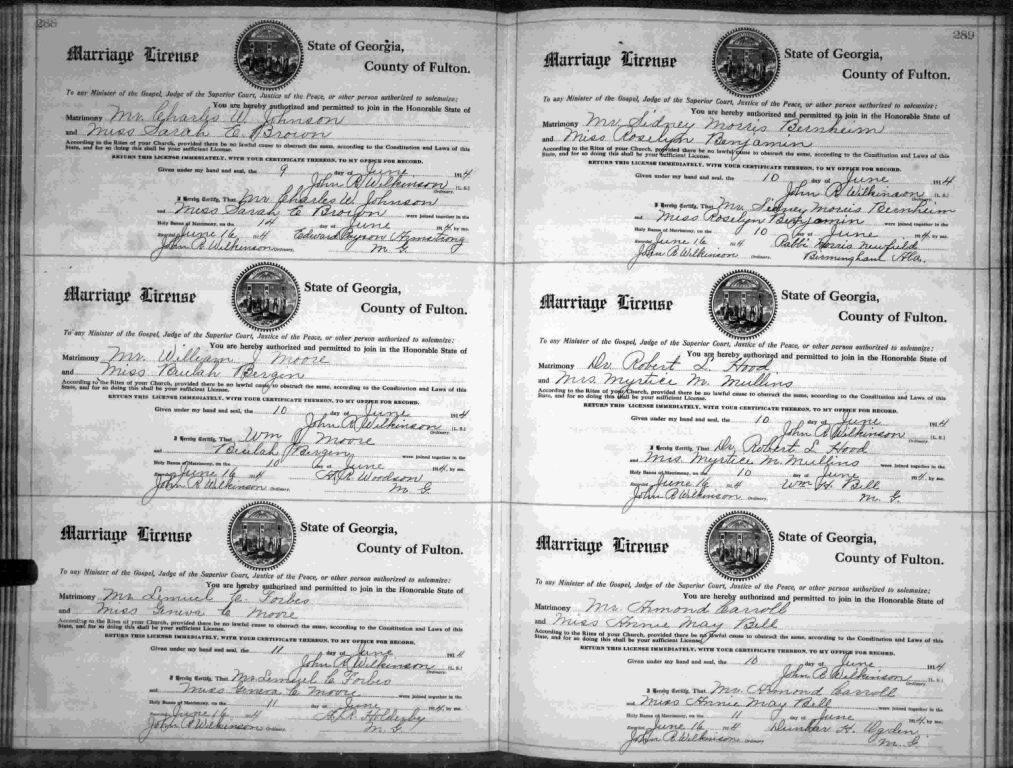 288
Marriage License
State of Georgia,
County of Fulton.
To any Minister of the Gospel, Judge of the Superior Court, Justice of the Peace, or other person authorized to solemnize:
You are hereby authorized and permitted to join in the Honorable State of
Matrimony Mr. Charles W. Johnson
and Miss Sarah E. Brown
According to the Rites of your Church, provided there be no lawful cause to obstruct the same, according to the Constitution and Laws of this
State, and for so doing this shall be your sufficient License.
RETURN THIS LICENSE IMMEDIATELY, WITH YOUR CERTIFICATE THEREON, TO MY OFFICE FOR RECORD.
Given under my hand and seal, the 9 day of June 1914
John R Wilkinson (L. S.)
Ordinary.
I Hereby Certify, That Mr Charles W Johnson
and Miss Sarah E Brown were joined together in the
Holy Bans of Matrimony, on the 14 day of June 1914, by me.
Recorded June 16 1914 Edward Payson Armstrong
John R Wilkinson Ordinary. M. G.
Marriage License
State of Georgia,
County of Fulton.
To any Minister of the Gospel, Judge of the Superior Court, Justice of the Peace, or other person authorized to solemnize:
You are hereby authorized and permitted to join in the Honorable State of
Matrimony Mr. William J Moore
and Miss Beulah Bergen
According to the Rites of your Church, provided there be no lawful cause to obstruct the same, according to the Constitution and Laws of this
State, and for so doing this shall be your sufficient License.
RETURN THIS LICENSE IMMEDIATELY, WITH YOUR CERTIFICATE THEREON, TO MY OFFICE FOR RECORD.
Given under my hand and seal, the 10 day of June 1914
John R Wilkinson (L. S.)
Ordinary.
I Hereby Certify, That Wm J Moore
and Beulah Bergen were joined together in the
Holy Bans of Matrimony, on the 10 day of June 1914, by me.
Recorded June 16 1914 Woodson
John R Wilkinson Ordinary. M. G.
Marriage License
State of Georgia,
County of Fulton.
To any Minister of the Gospel, Judge of the Superior Court, Justice of the Peace, or other person authorized to solemnize:
You are hereby authorized and permitted to join in the Honorable State of
Matrimony Mr. Lemuel C. Forbes
and Miss Geneva C Moore
According to the Rites of your Church, provided there be no lawful cause to obstruct the same, according to the Constitution and Laws of this
State, and for so doing this shall be your sufficient License.
RETURN THIS LICENSE IMMEDIATELY, WITH YOUR CERTIFICATE THEREON, TO MY OFFICE FOR RECORD.
Given under my hand and seal, the 11 day of June 1914
John R Wilkinson (L. S.)
Ordinary.
I Hereby Certify, That Mr Lemuel C Forbes
and Miss Geneva C Moore were joined together in the
Holy Bans of Matrimony, on the 11 day of June 1914, by me.
Recorded June 16 1914 Holderby
John R Wilkinson Ordinary. M. G.
289
Marriage License
State of Georgia,
County of Fulton.
To any Minister of the Gospel, Judge of the Superior Court, Justice of the Peace, or other person authorized to solemnize:
You are hereby authorized and permitted to join in the Honorable State of
Matrimony Mr. Sidney Morris Bernheim
and Miss Roselyn Benjamin
According to the Rites of your Church, provided there be no lawful cause to obstruct the same, according to the Constitution and Laws of this
State, and for so doing this shall be your sufficient License.
RETURN THIS LICENSE IMMEDIATELY, WITH YOUR CERTIFICATE THEREON, TO MY OFFICE FOR RECORD.
Given under my hand and seal, the 10 day of June 1914
John R Wilkinson (L. S.)
Ordinary.
I Hereby Certify, That Mr. Sidney Morris Bernheim
and Miss Roselyn Benjamin were joined together in the
Holy Bans of Matrimony, on the 10 day of June 1914, by me.
Recorded June 16 1914 Rabbi Morris Newfield
John R Wilkinson Ordinary. Birmingham Ala.
Marriage License
State of Georgia,
County of Fulton.
To any Minister of the Gospel, Judge of the Superior Court, Justice of the Peace, or other person authorized to solemnize:
You are hereby authorized and permitted to join in the Honorable State of
Matrimony Dr. Robert L. Hood
and Mrs. Myrtice M. Mullins
According to the Rites of your Church, provided there be no lawful cause to obstruct the same, according to the Constitution and Laws of this
State, and for so doing this shall be your sufficient License.
RETURN THIS LICENSE IMMEDIATELY, WITH YOUR CERTIFICATE THEREON, TO MY OFFICE FOR RECORD.
Given under my hand and seal, the 10 day of June 1914
John R Wilkinson (L. S.)
Ordinary.
I Hereby Certify, That Dr. Robert L Hood
and Mrs. Myrtice M. Mullins were joined together in the
Holy Bans of Matrimony, on the 10 day of June 1914, by me.
Recorded June 16 1914 Wm H. Bell
John R Wilkinson Ordinary. M. G.
Marriage License
State of Georgia,
County of Fulton.
To any Minister of the Gospel, Judge of the Superior Court, Justice of the Peace, or other person authorized to solemnize:
You are hereby authorized and permitted to join in the Honorable State of
Matrimony Mr. Armond Carroll
and Miss Annie May Bell
According to the Rites of your Church, provided there be no lawful cause to obstruct the same, according to the Constitution and Laws of this
State, and for so doing this shall be your sufficient License.
RETURN THIS LICENSE IMMEDIATELY, WITH YOUR CERTIFICATE THEREON, TO MY OFFICE FOR RECORD.
Given under my hand and seal, the 10 day of June 1914
John R Wilkinson (L. S.)
Ordinary.
I Hereby Certify, That Mr. Armond Carroll
and Miss Annie May Bell were joined together in the
Holy Bans of Matrimony, on the 11 day of June 1914, by me.
Recorded June 16 1914 H. Ogden
John R Wilkinson Ordinary. M. G.